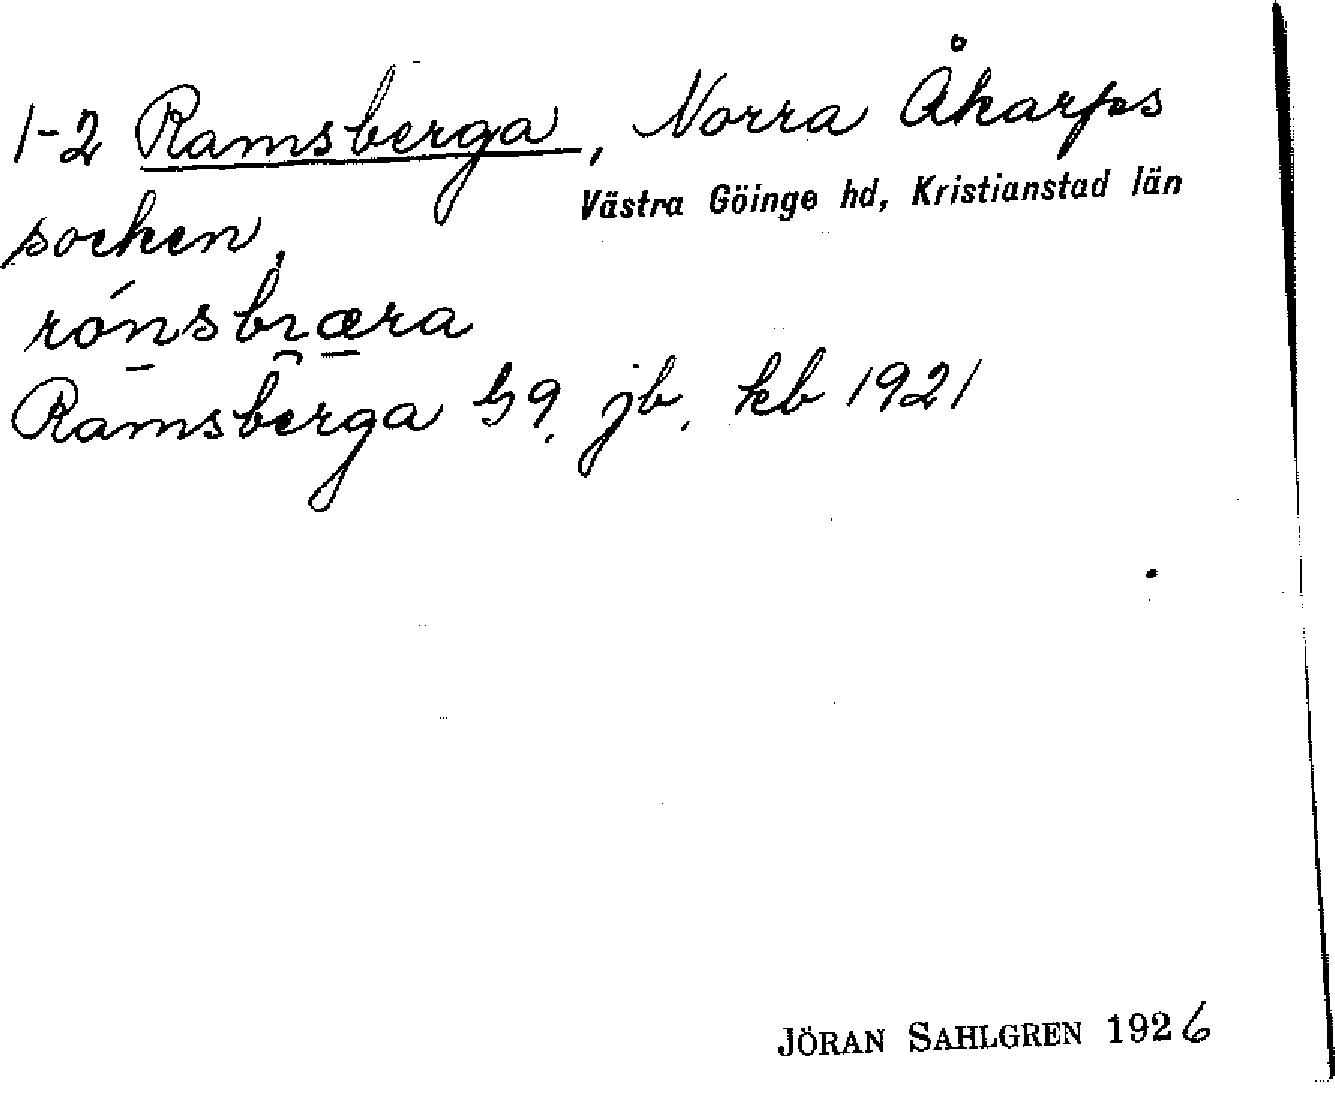 1-2 Ramsberga, Norra Åkarps
Västra Göinge hd, Kristianstad län
socken,
Ramsberga G9, jb, kb 1921
JÖRAN SAHLGREN 1926